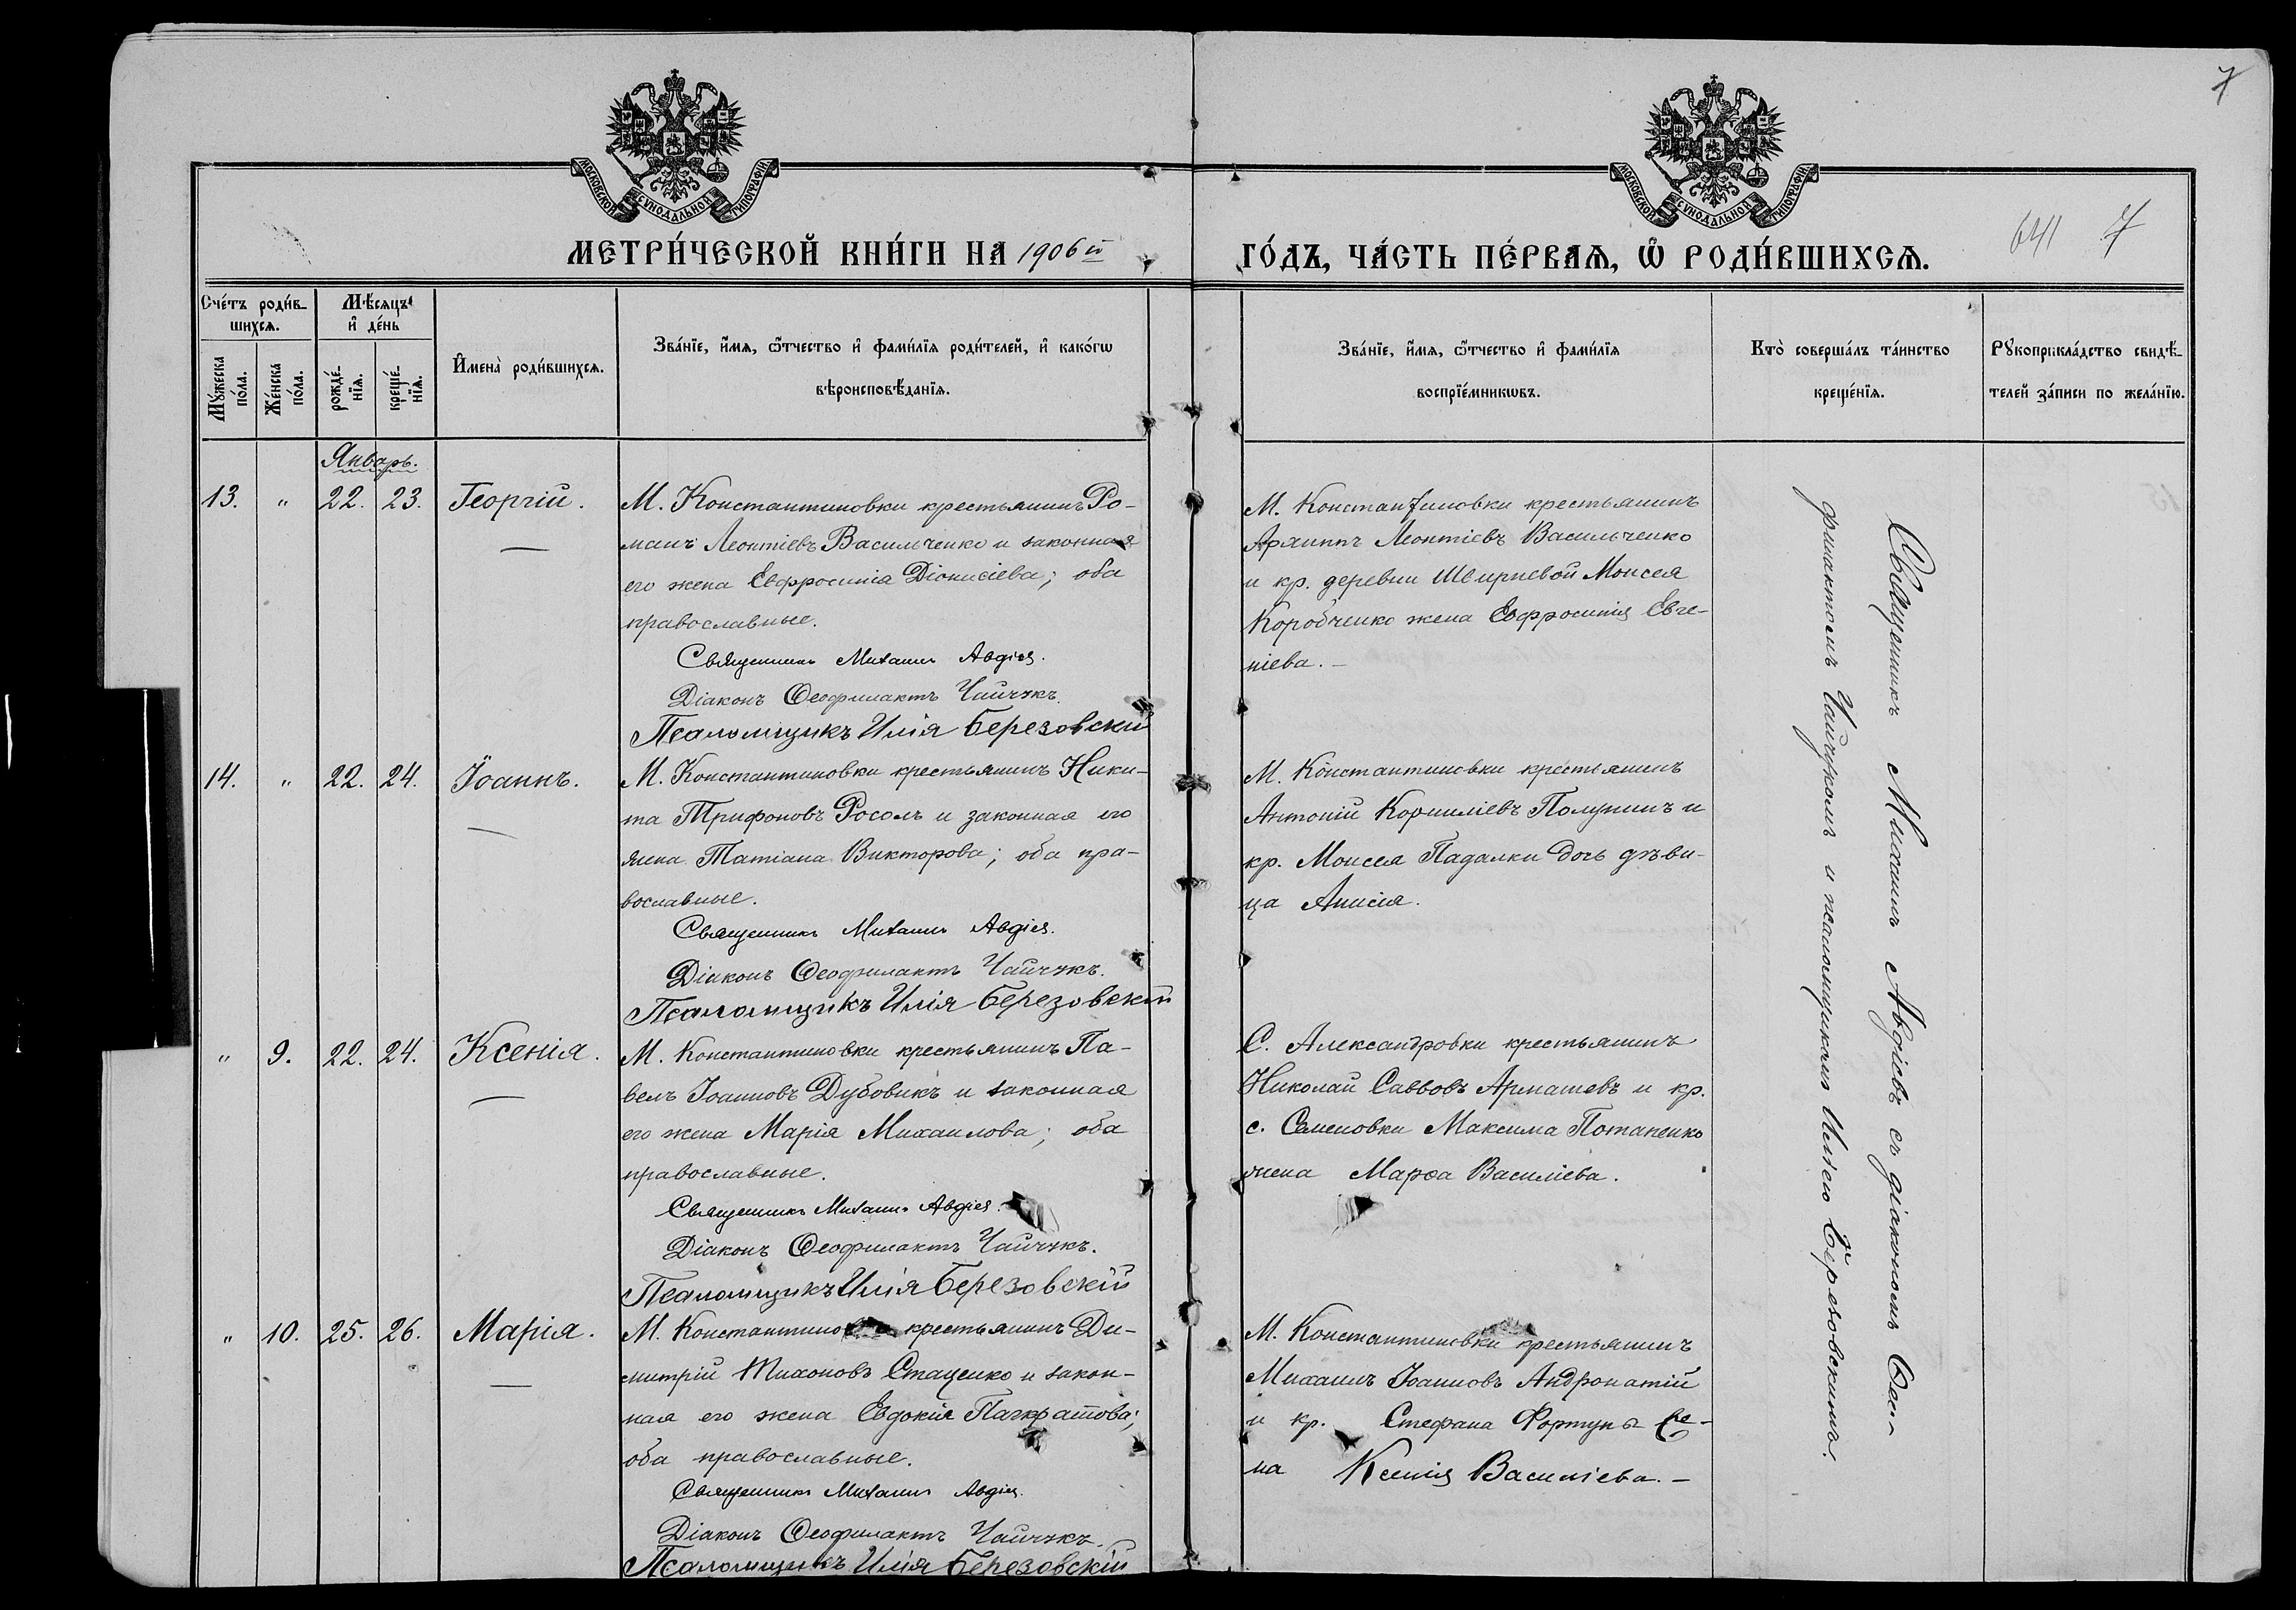 7
МОСКОВСКОЙ СѴНОДАЛЬНОЙ ТИПОГРАФІИ
МОСКОВСКОЙ СѴНОДАЛЬНОЙ ТИПОГРАФІИ
МЕТРИ́ЧЕСКОЙ КНИ́ГИ НА 1906 й
ГО́ДЪ, ЧА́СТЬ ПЕ́РВАЯ, Ѽ РОДИ́ВШИХСЯ.
641 7
Сче́тъ роди́в-
шихся.
Мѣсяцъ
и҆ де́нь
Мꙋ́жеска по́ла.
Же́нска по́ла.
рожде́-
нїя.
креще́-
нїя.
И҆мена̀ роди́вшихся.
Зва́нїе, и҆́мя, ѻ҆́тчество и҆ фами́лїя роди́телей, и҆ како́гѡ
вѣроисповѣ́данїя.
Зва́нїе, и҆́мя, ѻ҆́тчество и҆ фами́лїя
воспрїе́мникѡвъ.
Кто̀ соверша́лъ та́инство
креще́нїя.
Рꙋкоприкла́дство свидѣ́-
телей за́писи по жела́нїю.
Январь.
13. " 22. 23. Георгій.
М. Константиновки крестьянинъ Ро-
манъ Леонтіевъ Васильченко и законная
его жена Евфросинія Діонисіева; оба
православные.
Священникъ Михаилъ Авдіев.
Діаконъ Ѳеофилактъ Чайчукъ.
Псаломщикъ Илія Березовскій
М. Константиновки крестьянинъ
Леонтіевъ Васильченко
и кр. деревни Моисея
Коробченко жена Евфросинія Евге-
ніева. –
14. " 22. 24. Іоаннъ.
М. Константиновки крестьянинъ Ники-
та Трифоновъ Росолъ и законная его
жена Татіана Викторова; оба пра-
вославные.
Священникъ Михаилъ Авдіев.
Діаконъ Ѳеофилактъ Чайчукъ.
Псаломщикъ Илія Березовскій
М. Константиновки крестьянинъ
Антоній Корниліевъ Полунинъ и
кр. Моисея Падалки дочь дѣви-
ца Анисія.
" 9. 22. 24. Ксенія.
М. Константиновки крестьянинъ Па-
велъ Іоанновъ Дубовикъ и законная
его жена Марія Михаилова; оба
православные.
Священникъ Михаилъ Авдіев.
Діаконъ Ѳеофилактъ Чайчукъ.
Псаломщикъ Илія Березовскій
С. Александровки крестьянинъ
Николай Саввовъ Армашевъ и кр.
с. Семеновки Максима Потапенко
жена Марѳа Василіева.
" 10. 25. 26. Марія.
М. Константиновки крестьянинъ Ди-
митрій Тихоновъ Стаценко и закон-
ная его жена Евдокія Панкратова;
оба православные.
Священникъ Михаилъ Авдіев.
Діаконъ Ѳеофилактъ Чайчукъ.
Псаломщикъ Илія Березовскій
М. Константиновки крестьянинъ
Михаилъ Іоанновъ Андронатій
и кр. Стефана Фортуны же-
на Ксенія Василіева. –
Священникъ Михаилъ Авдіевъ съ діакономъ Ѳео-
филактомъ Чайчукомъ и псаломщикомъ Иліею Березовскимъ.